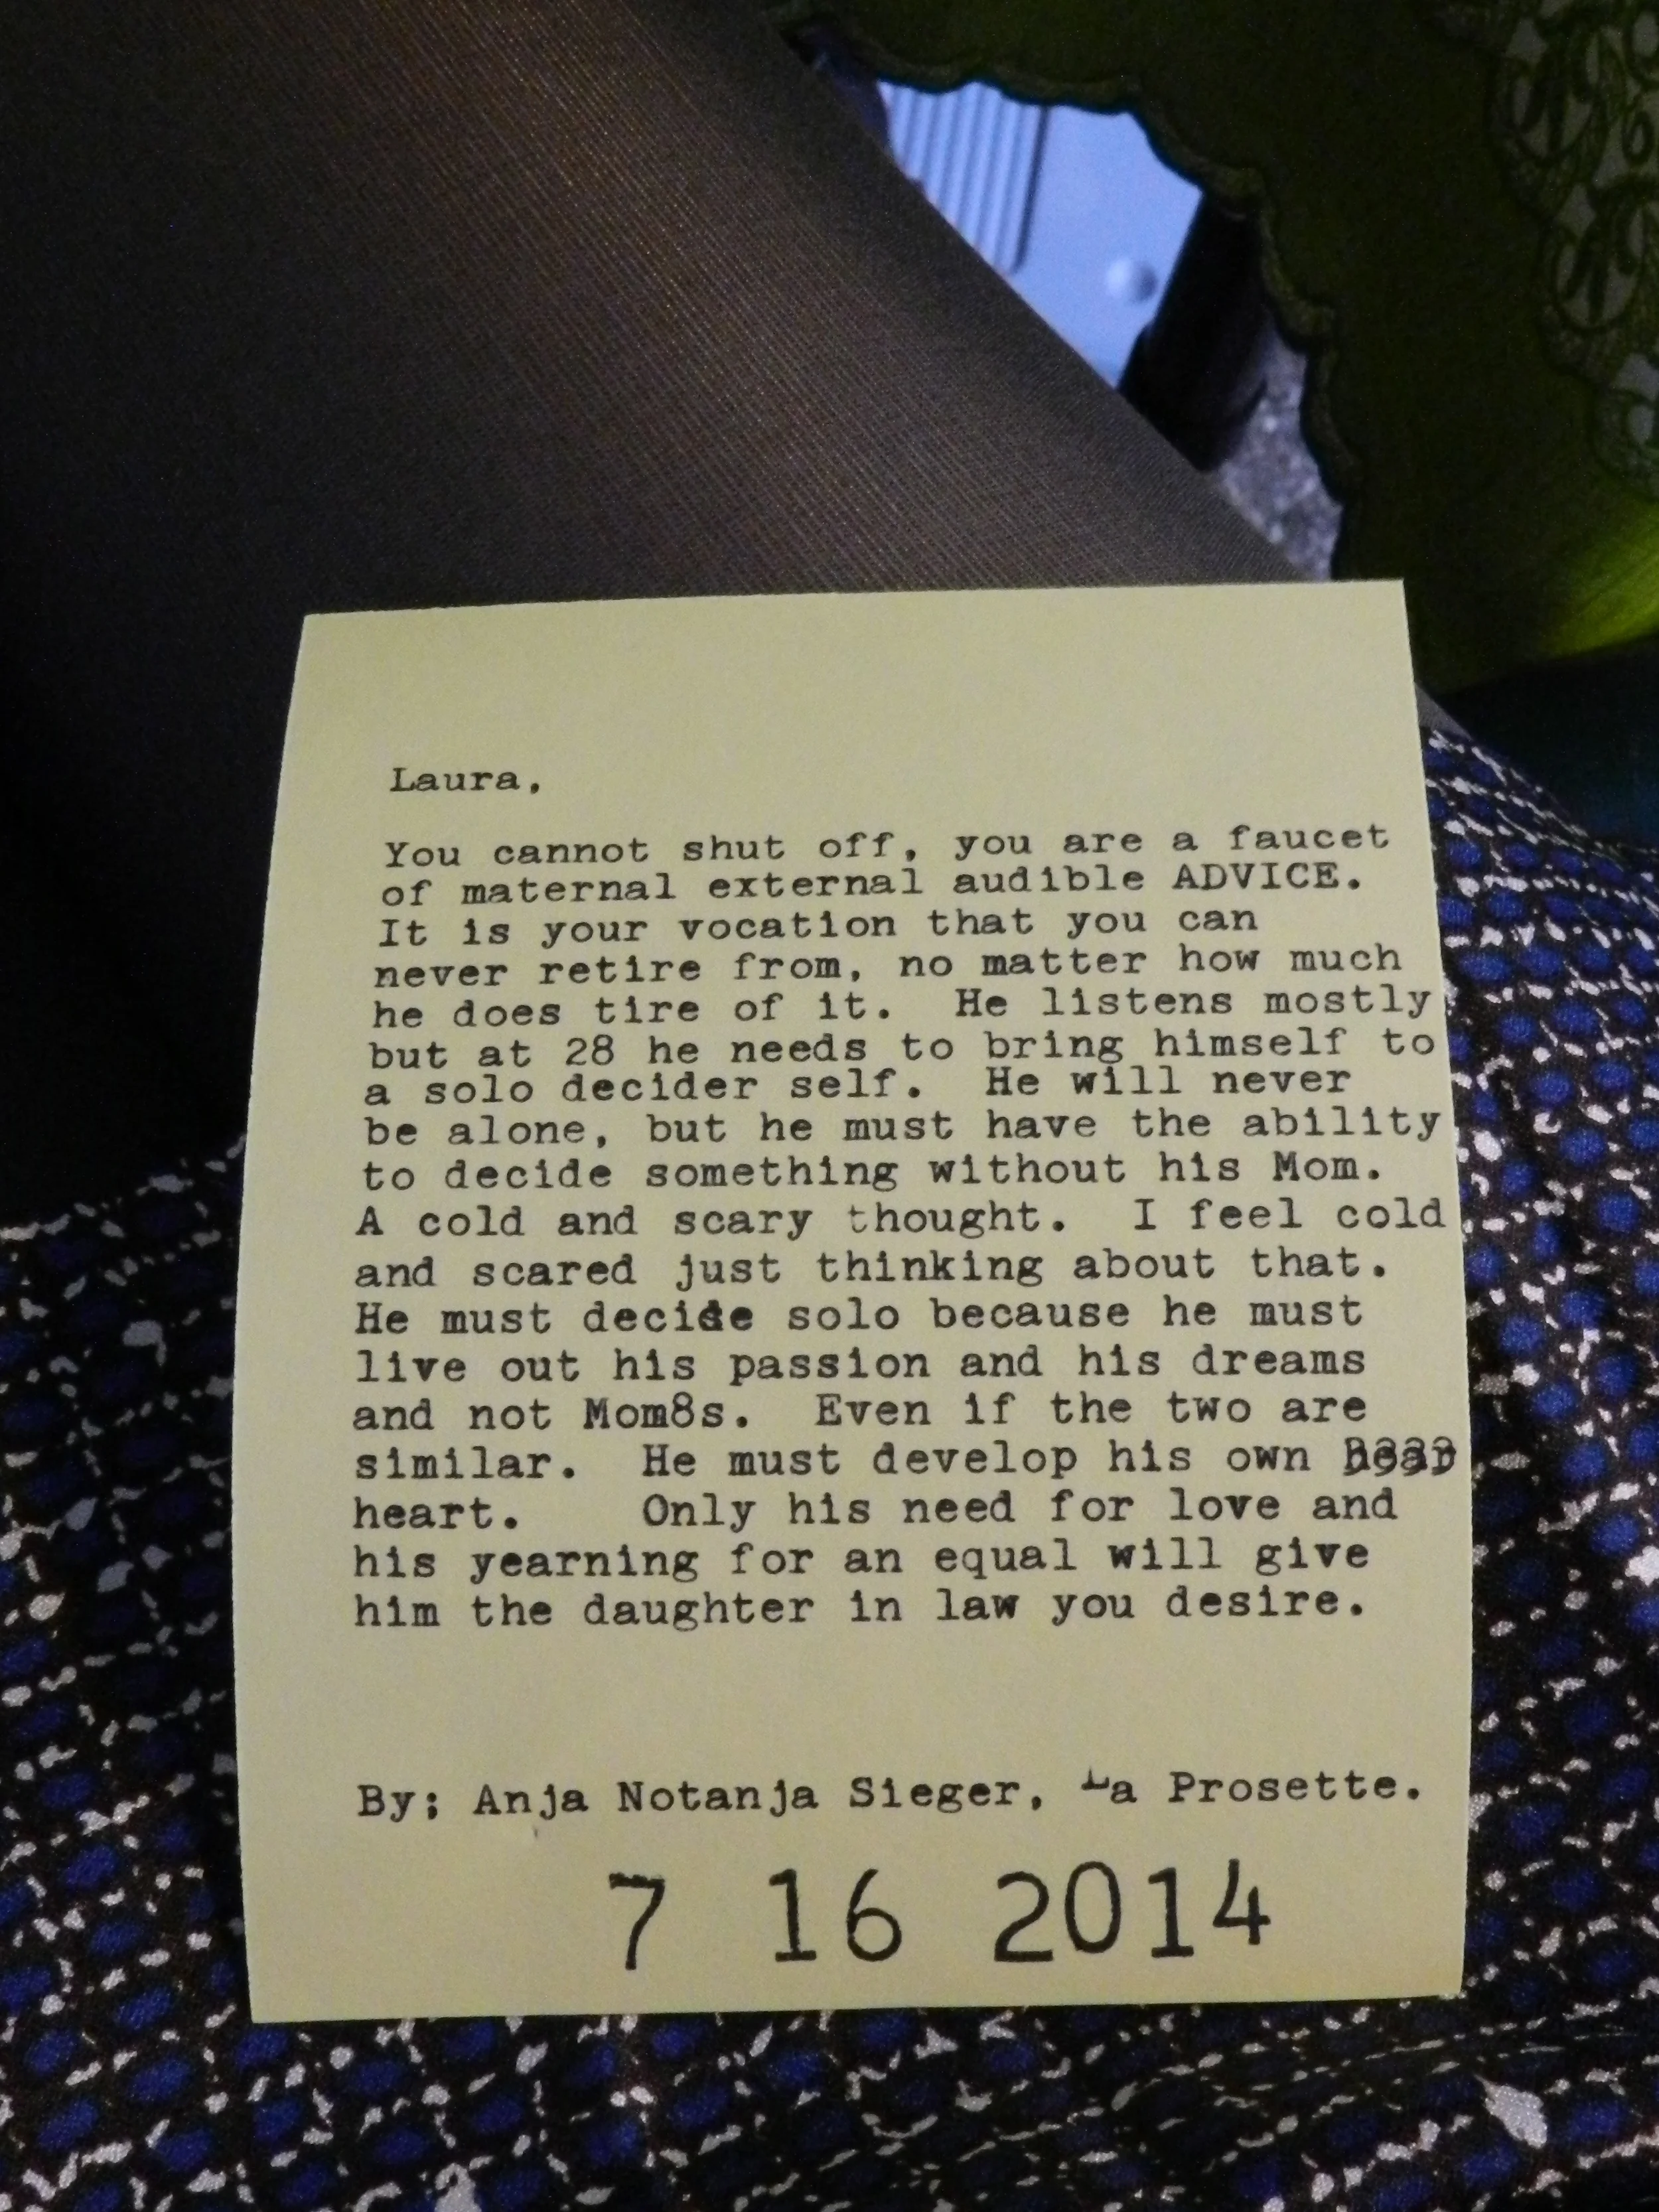 Laura,
You cannot shut off, you are a faucet
of maternal external audible ADVICE.
It is your vocation that you can
never retire from, no matter how much
he does tire of it. He listens mostly
but at 28 he needs to bring himself to
a solo decider self. He will never
be alone, but he must have the ability
to decide something without his Mom.
A cold and scary thought. I feel cold
and scared just thinking about that.
He must decide solo because he must
live out his passion and his dreams
and not Mom8s. Even if the two are
similar. He must develop his own
heart. Only his need for love and
his yearning for an equal will give
him the daughter in law you desire.
By; Anja Notanja Sieger, La Prosette.
7 16 2014